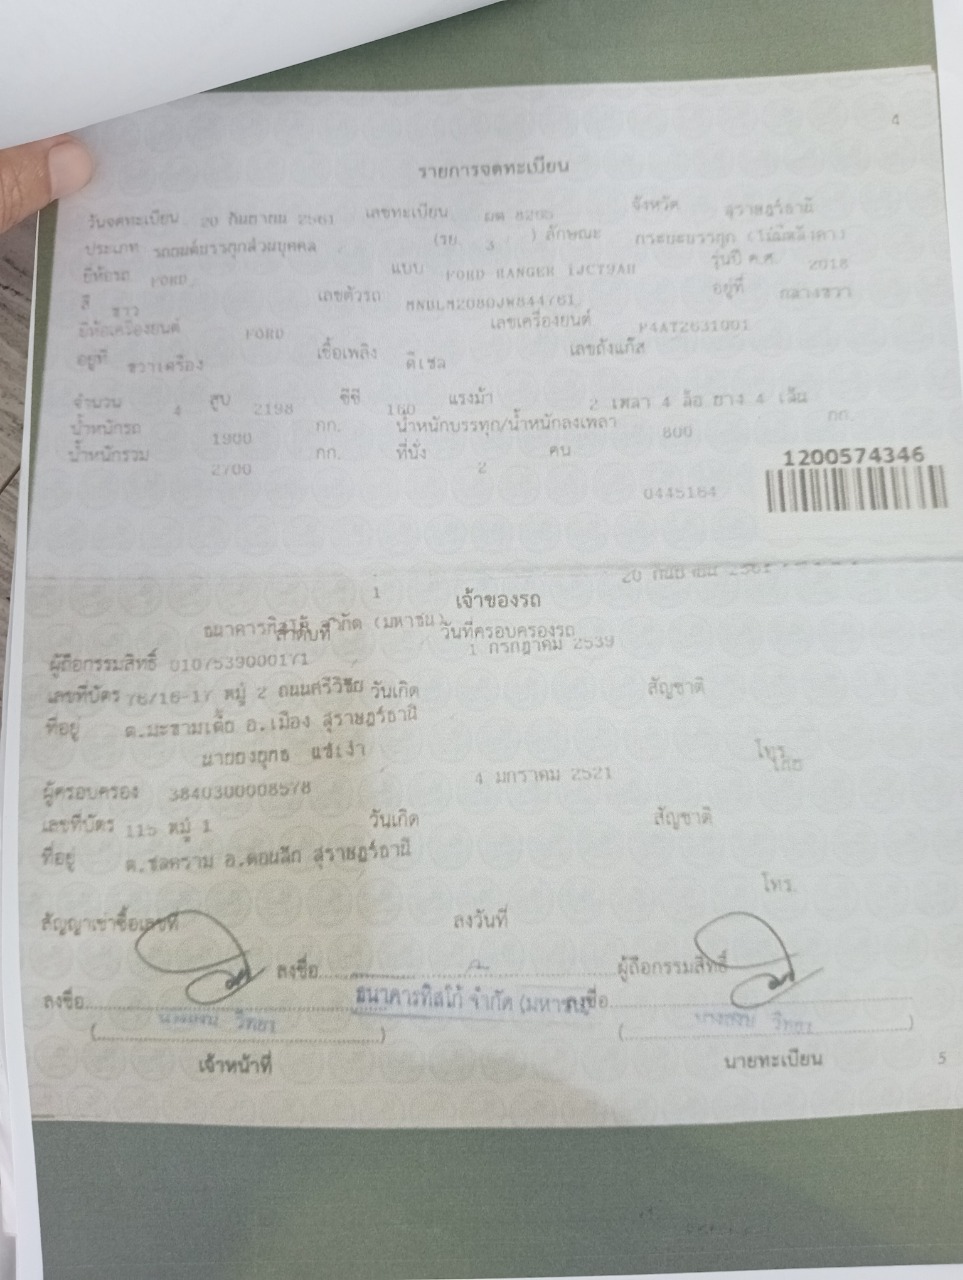 4
รายการจดทะเบียน
วันจดทะเบียน 20 กันยายน 2561 เลขทะเบียน ผต จังหวัด สุราษฎร์ธานี
ประเภท รถยนต์บรรทุกส่วนบุคคล (รย 3 ) ลักษณะ กระบะบรรทุก (ไม่มีหลังคา)
ยี่ห้อรถ FORD แบบ FORD RANGER รุ่นปี ค.ศ. 2018
สี ขาว เลขตัวรถ MNBLM2080JW844761 อยู่ที่ กลางขวา
ยี่ห้อเครื่องยนต์ FORD เลขเครื่องยนต์ P4AT2631001
อยู่ที่ ขวาเครื่อง เชื้อเพลิง ดีเซล เลขถังแก๊ส
จำนวน 4 สูบ 2198 ซีซี 160 แรงม้า 2 เพลา 4 ล้อ ยาง 4 เส้น
น้ำหนักรถ 1900 กก. น้ำหนักบรรทุก/น้ำหนักลงเพลา 800 กก.
น้ำหนักรวม 2700 กก. ที่นั่ง 2 คน
1200574346
0445164
20 กันยายน 2561
1 เจ้าของรถ
ธนาคารทิสโก้ จำกัด (มหาชน)
ลำดับที่ วันที่ครอบครองรถ
1 กรกฎาคม 2539
ผู้ถือกรรมสิทธิ์ 0107539000171
เลขที่บัตร 76/16-17 หมู่ 2 ถนนศรีวิชัย วันเกิด สัญชาติ
ที่อยู่ ต.มะขามเตี้ย อ.เมือง สุราษฎร์ธานี
นายยงยุทธ โทร.
ไทย
4 มกราคม 2521
ผู้ครอบครอง 3840300008578
เลขที่บัตร 115 หมู่ 1 วันเกิด สัญชาติ
ที่อยู่ ต.ชลคราม อ.ดอนสัก สุราษฎร์ธานี
โทร.
สัญญาเช่าซื้อเลขที่ ลงวันที่
ลงชื่อ ผู้ถือกรรมสิทธิ์
ลงชื่อ ธนาคารทิสโก้ จำกัด (มหาชน) ลงชื่อ
( วิทยา ) ( วิทยา )
เจ้าหน้าที่ นายทะเบียน 5